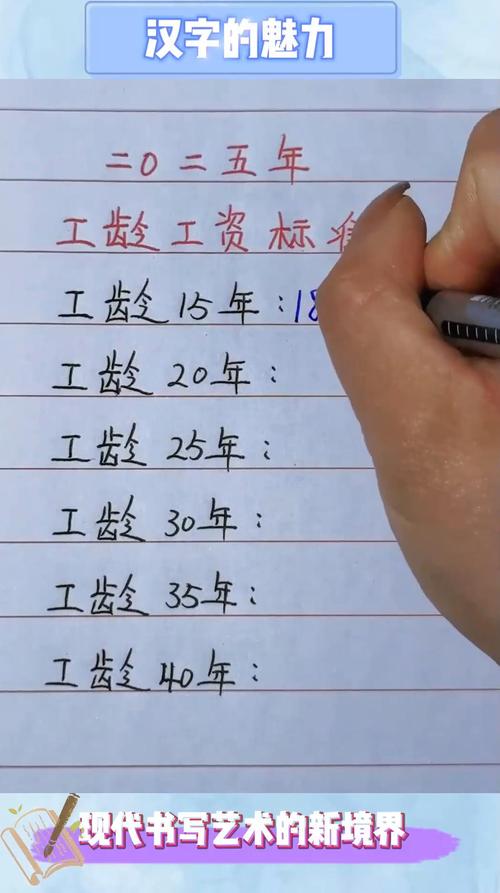 汉字的魅力
二〇二五年
工龄工资标
工龄15年:18
工龄20年:
工龄25年:
工龄30年:
工龄35年:
工龄40年:
现代书写艺术的新境界